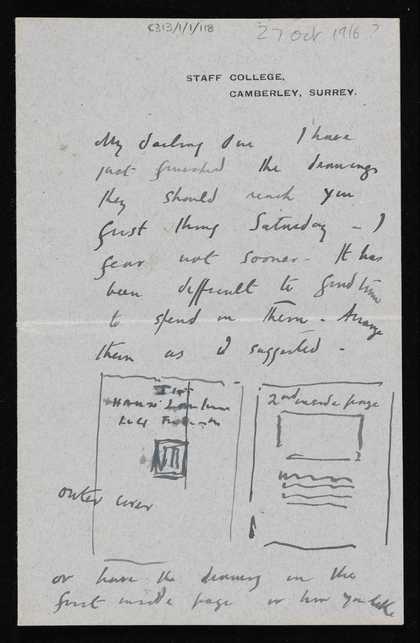 27 Oct 1916?
STAFF COLLEGE,
CAMBERLEY, SURREY.
My darling One I have
just finished the drawings
they should reach you
first thing Saturday - I
fear not sooner - It has
been difficult to find time
to spend on them - Arrange
them as I suggested -
2nd inside page
outer cover
or have the drawing on the
first inside page or how you like